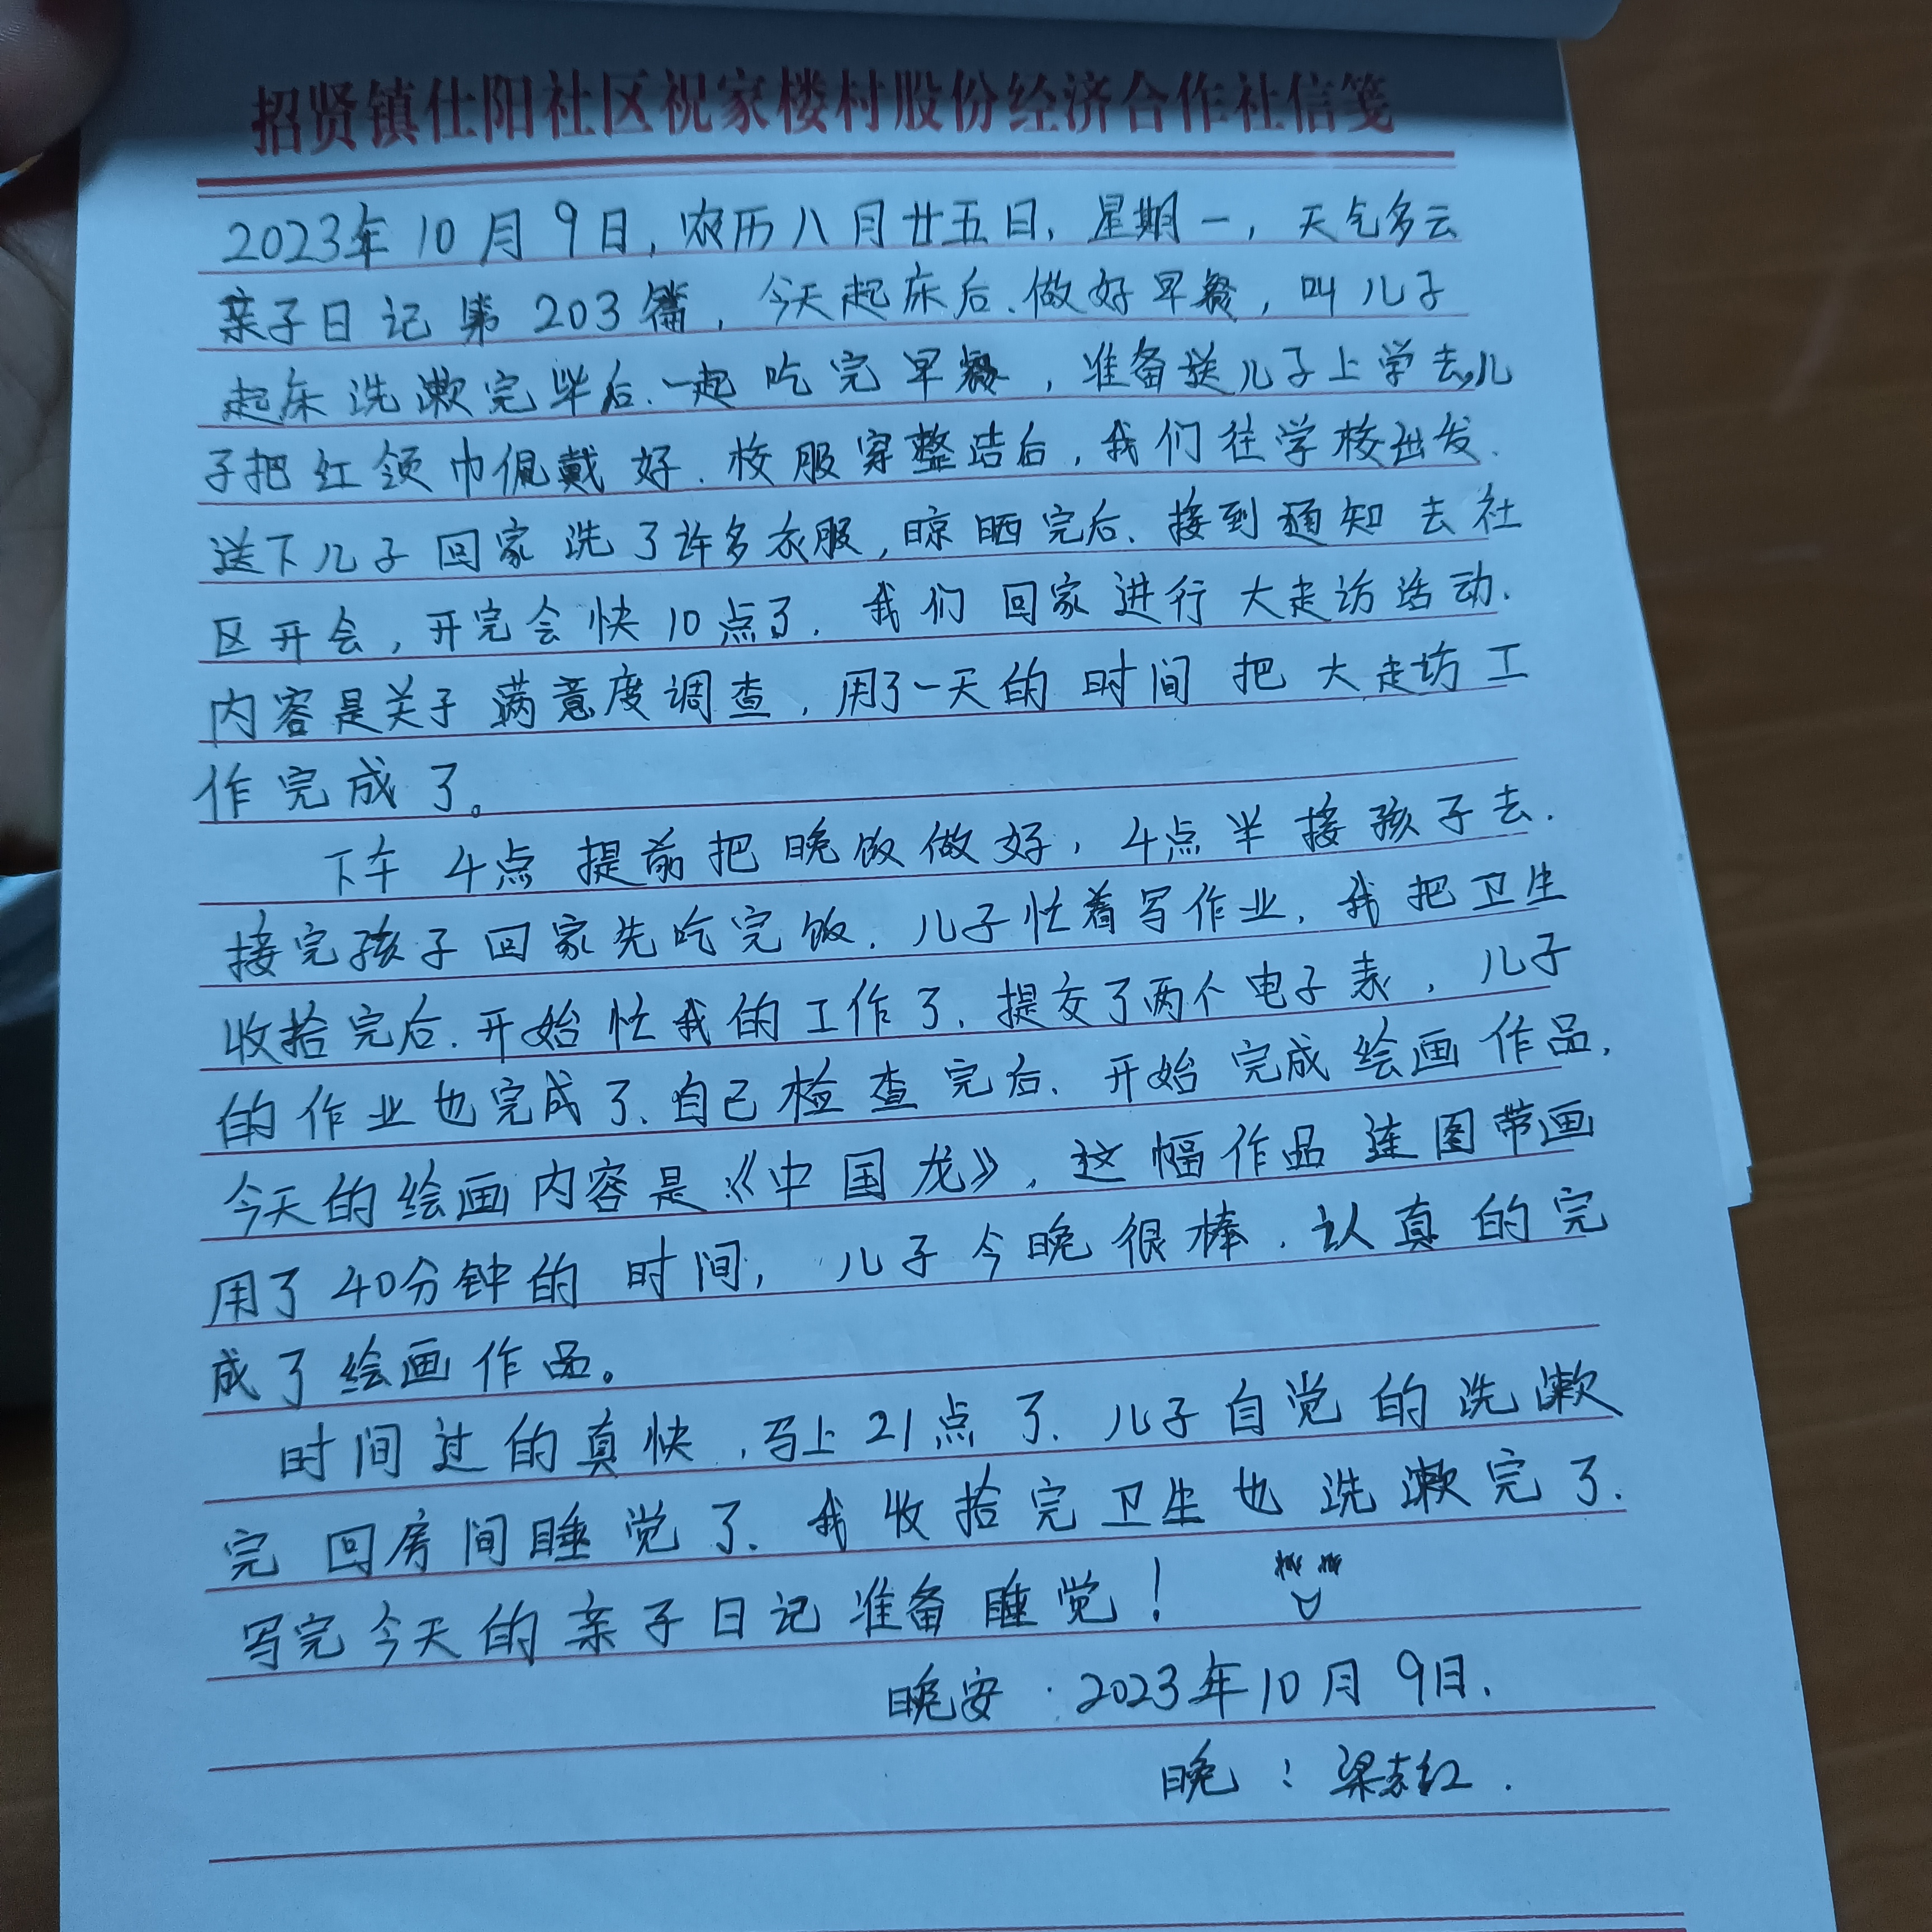 招贤镇仕阳社区祝家楼村股份经济合作社信笺
2023年10月9日,农历八月廿五日,星期一,天气多云
亲子日记第203篇,今天起床后.做好早餐,叫儿子
起床洗漱完毕后.一起吃完早餐,准备送儿子上学去,儿
子把红领巾佩戴好.校服穿整洁后,我们往学校出发.
送下儿子回家洗了许多衣服,晾晒完后.接到通知去社
区开会,开完会快10点了.我们回家进行大走访活动.
内容是关于满意度调查,用了一天的时间把大走访工
作完成了。
下午4点提前把晚饭做好,4点半接孩子去.
接完孩子回家先吃完饭.儿子忙着写作业,我把卫生
收拾完后.开始忙我的工作了.提交了两个电子表,儿子
的作业也完成了、自己检查完后.开始完成绘画作品.
今天的绘画内容是《中国龙》,这幅作品连图带画
用了40分钟的时间,儿子今晚很棒.认真的完
成了绘画作品。
时间过的真快,马上21点了.儿子自觉的洗漱
完回房间睡觉了.我收拾完卫生也洗漱完了.
写完今天的亲子日记准备睡觉!
晚安.2023年10月9日.
晚:梁红.